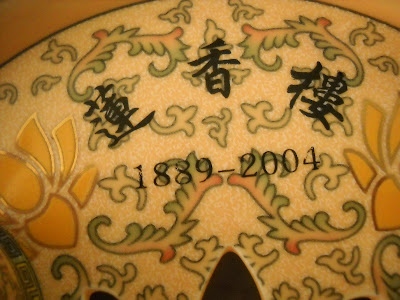 蓮香樓
1889-2004